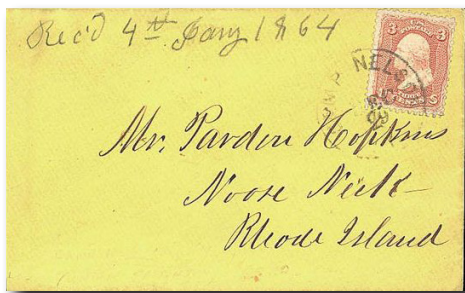 Rec'd 4th Jany 1864
3 3
NELSO
Mr. Pardon Hopkins
Noose Neck
Rhode Island